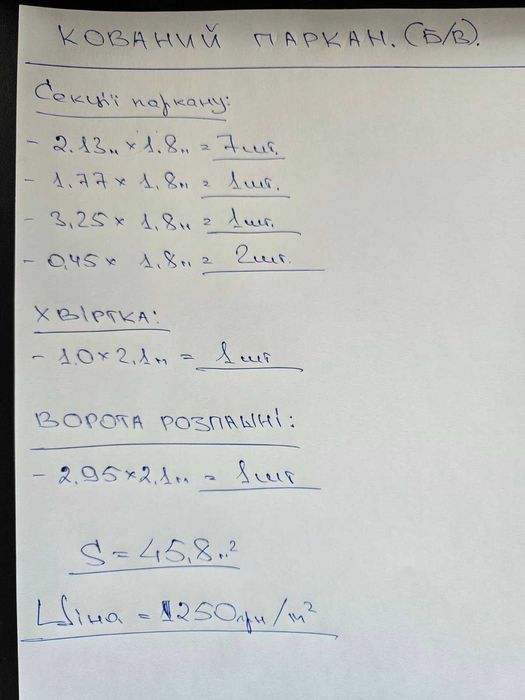 КОВАНИЙ ПАРКАН. (Б/В).
Секції паркану:
- 2.13м × 1.8м = 7шт.
- 1.77 × 1.8м = 1шт.
- 3,25 × 1,8м = 1шт.
- 0,45 × 1,8м = 2шт.
ХВІРТКА:
- 1.0 × 2,1м = 1шт
ВОРОТА РОЗПАШНІ:
- 2.95 × 2,1м = 1шт
S = 45,8м²
Ціна = 1250грн/м²